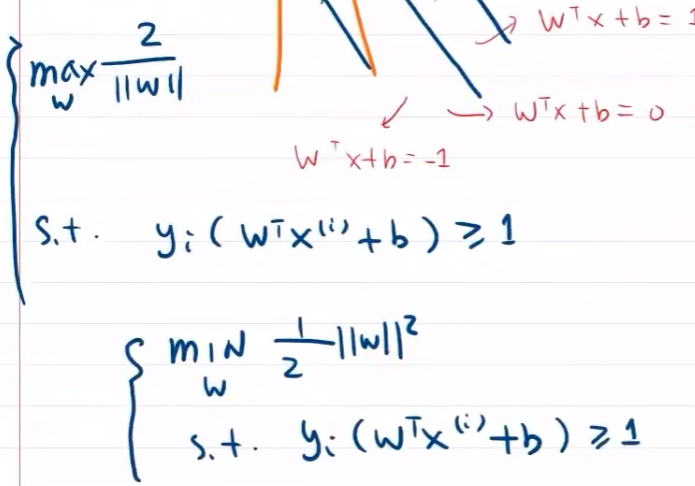 wᵀx + b = 1
max_w 2/||w||
wᵀx + b = 0
wᵀx+b = -1
s.t. yᵢ(wᵀx⁽ⁱ⁾+b) ≥ 1
min_w 1/2 ||w||²
s.t. yᵢ(wᵀx⁽ⁱ⁾+b) ≥ 1